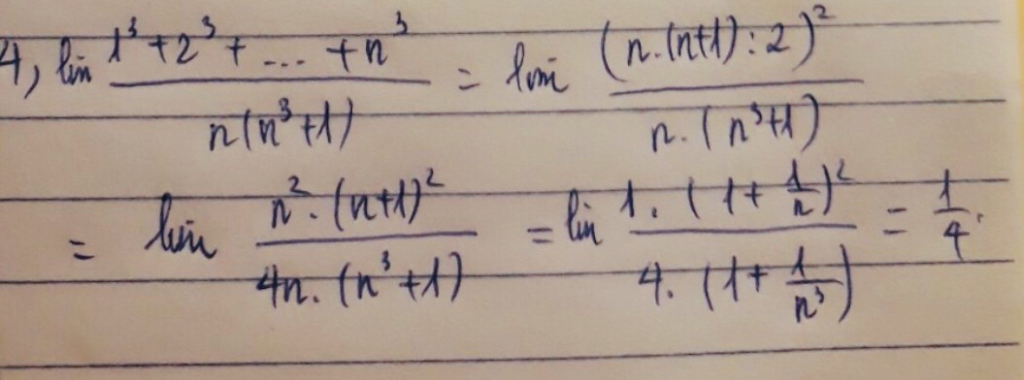 4, lim (1³ + 2³ + ... + n³) / (n(n³+1)) = lim (n.(n+1):2)² / (n.(n³+1))
= lim (n².(n+1)²) / (4n.(n³+1)) = lim (1.(1+1/n)²) / (4.(1+1/n³)) = 1/4.